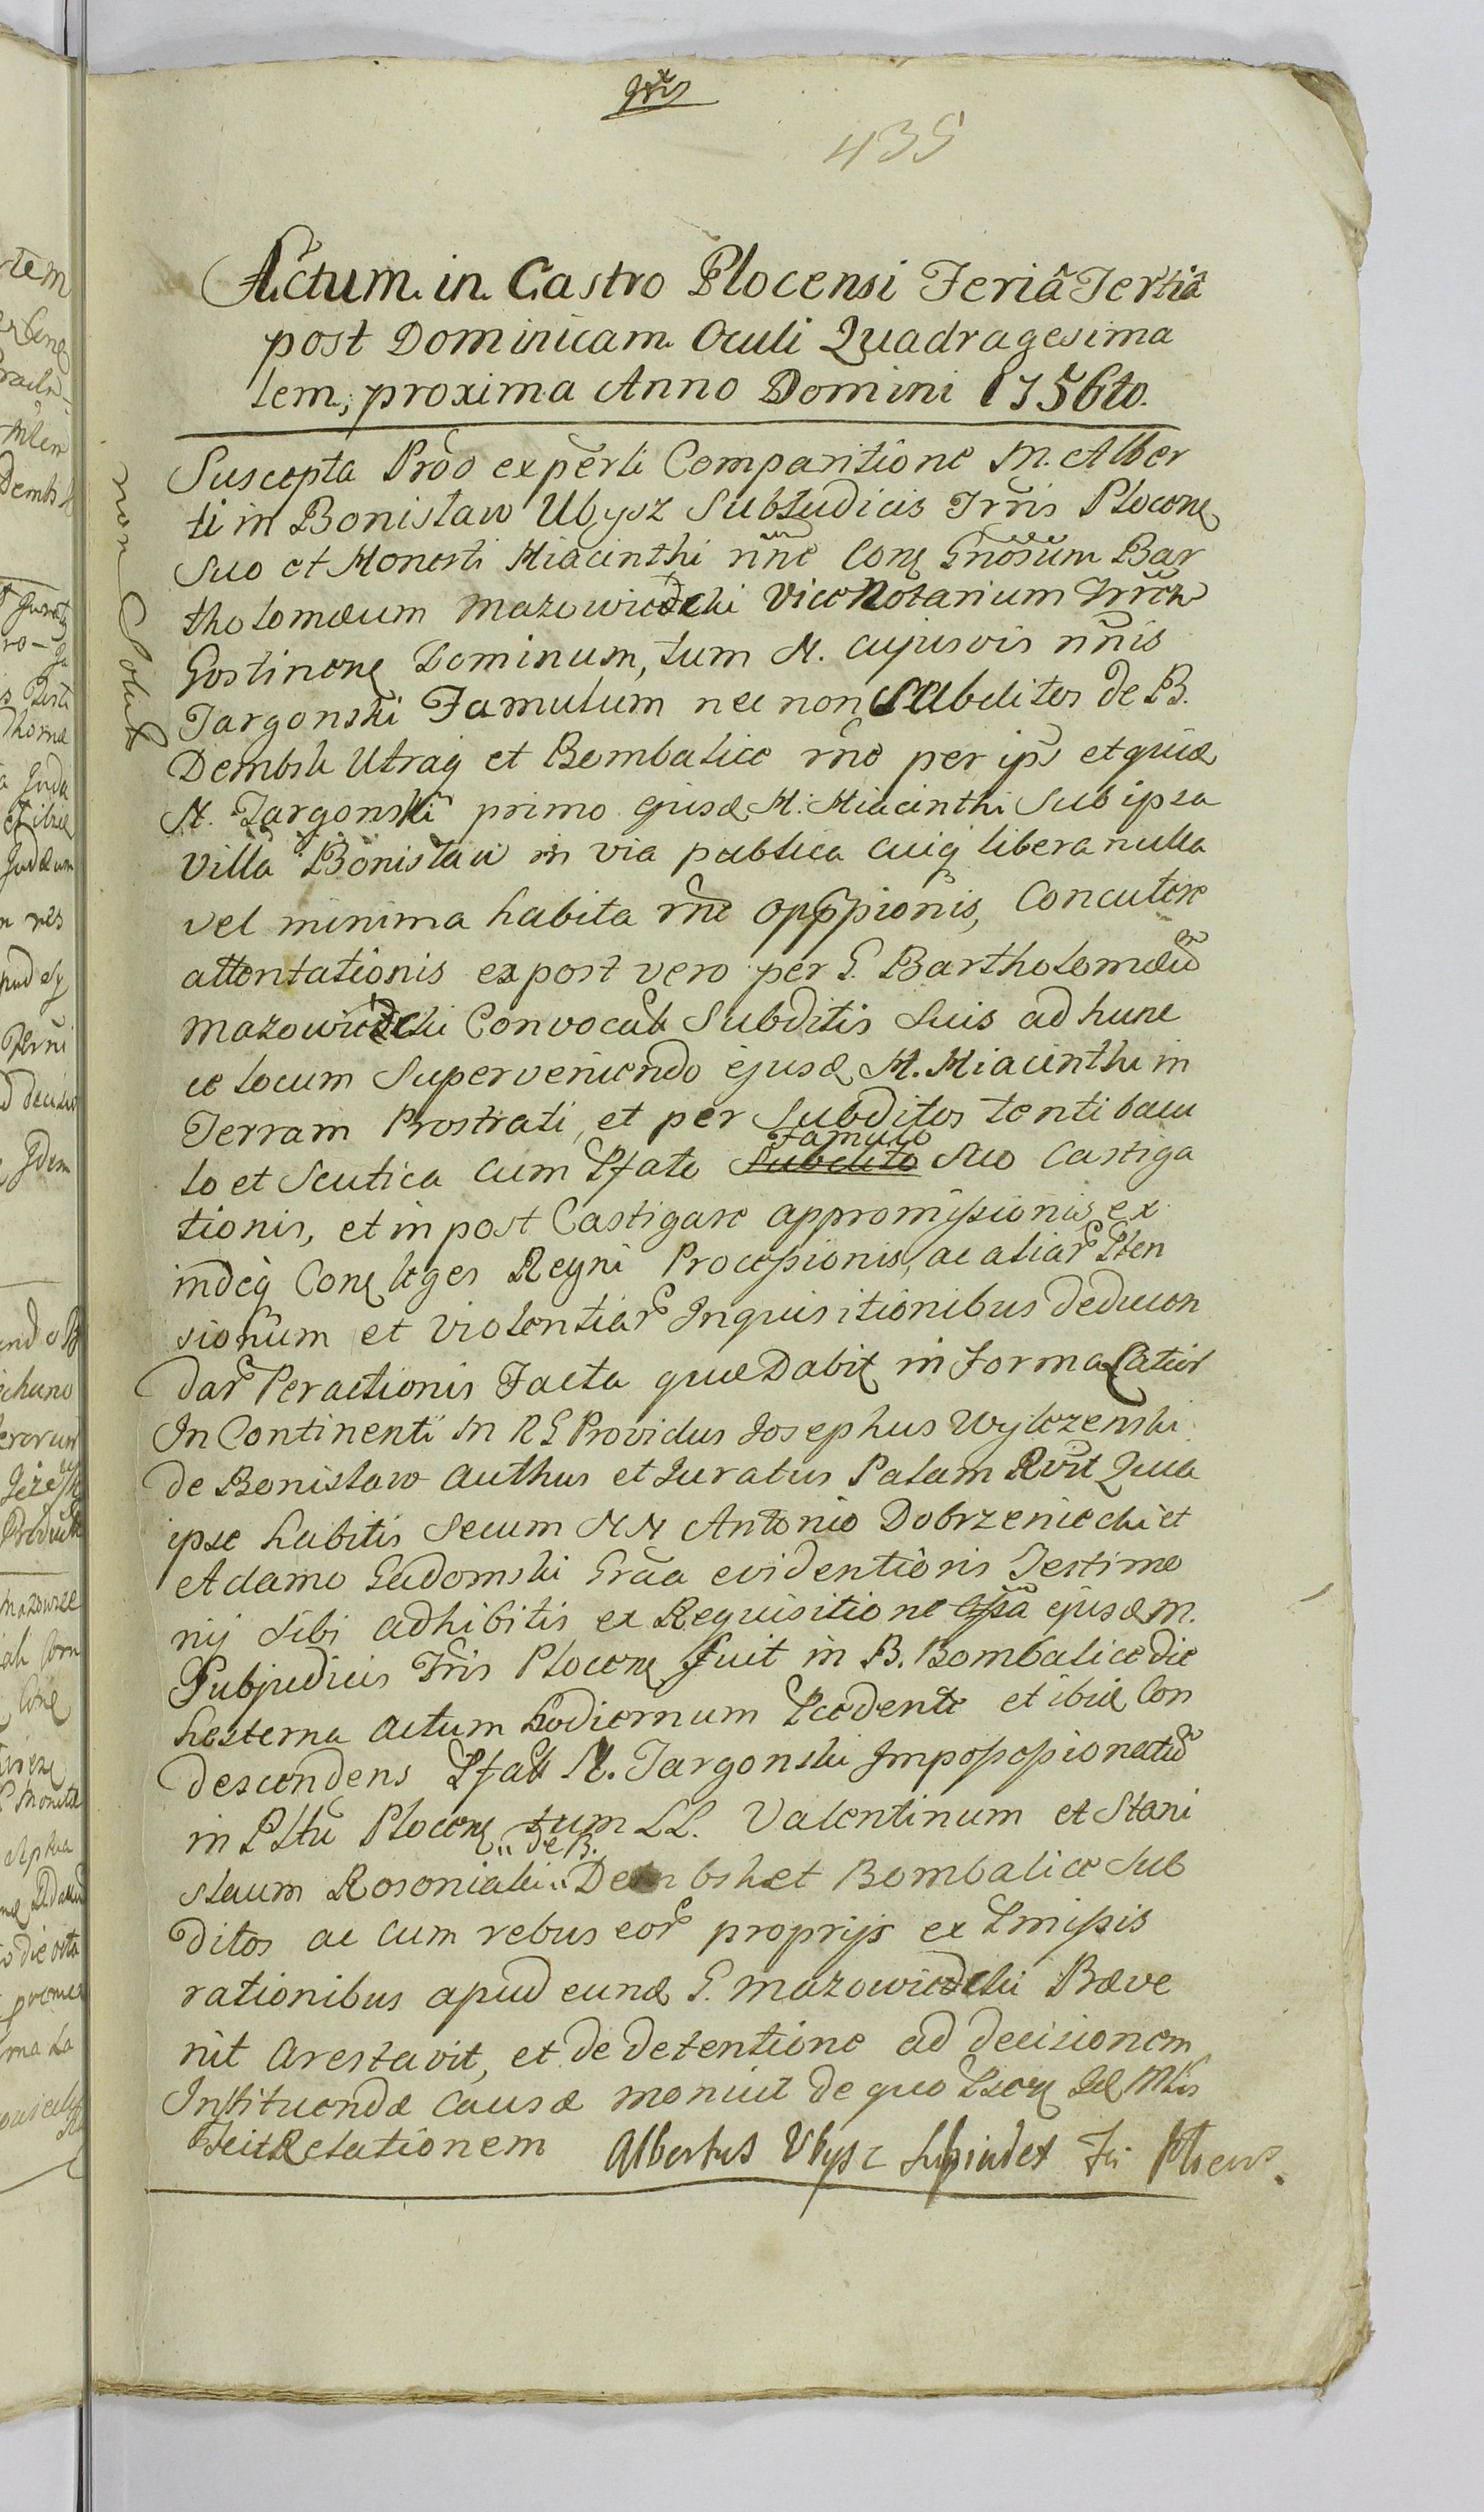 435
Actum in Castro Plocensi Feriâ Tertiâ
post Dominicam Oculi Quadragesima
lem, proxima Anno Domini 1756to.
non Solut
Suscepta Prõo experti Comparitione M. Alber
ti in Bonisław Ubysz SubJudicis Trris Plocen
Suo et Honesti Hiacinthi nñe Con Gnõsum Bar
tholomæum Mazowiecki ViceNotarium Trrch
Gostinen Dominum, tum N. cujusvis nñis
Targonski Famulum nec non Subditos de B.
Dembsk Utraq et Bombalice rñe per ips et quid
N. Targonski primo ejusd H. Hiacinthi Sub ipsa
Villa Bonisław in via publica cuiq libera nulla
vel minima habita rñe oppppionis, Concutere
attentationis ex post vero per G. Bartholomæu
Mazowiecki Convocat Subditis Suis ad hunc
ce locum Superveniendo ejusd H. Hiacinthi in
Terram Prostrati, et per Subditos tenti bacu
lo et Scutica cum Pfato Subdito Famulo Suo Castiga
tionis, et in post Castigare appromissionis ex
indeq Con leges Regni Processionis, ac aliar Pten
sionum et Violentiar Inquisitionibus deducen
dar Peractionis Facta quæ Dabit in Forma Latior
In Continenti M R G Providus Josephus Wylezenski
de Bonisław Authus et Juratus Palam Rvit Quia
ipse habitis Secum NN Antonio Dobrzeniecki et
Adamo Gadomski Grãa evidentioris Testimo
nij Sibi adhibitis ex Requisitione ejusd M.
Subjudicis Tris Plocen fuit in B. Bombalice die
hesterna Actum hodiernum Pcedente et ibid Con
descendens Pfat N. Targonski Impossessionatu
in Pltu Plocen tum LL. Valentinum et Stani
slaum Rosoniaki de B. Dembsk et Bombalice Sub
ditos ac cum rebus eor proprijs ex Pmissis
rationibus apud eund G. Mazowiecki Præve
nit Arestavit, et de detentione ad decisionem
Instituendæ Causæ moniit de quo
Fecit Relationem Albertus Ubysz Subjudex Plocens.